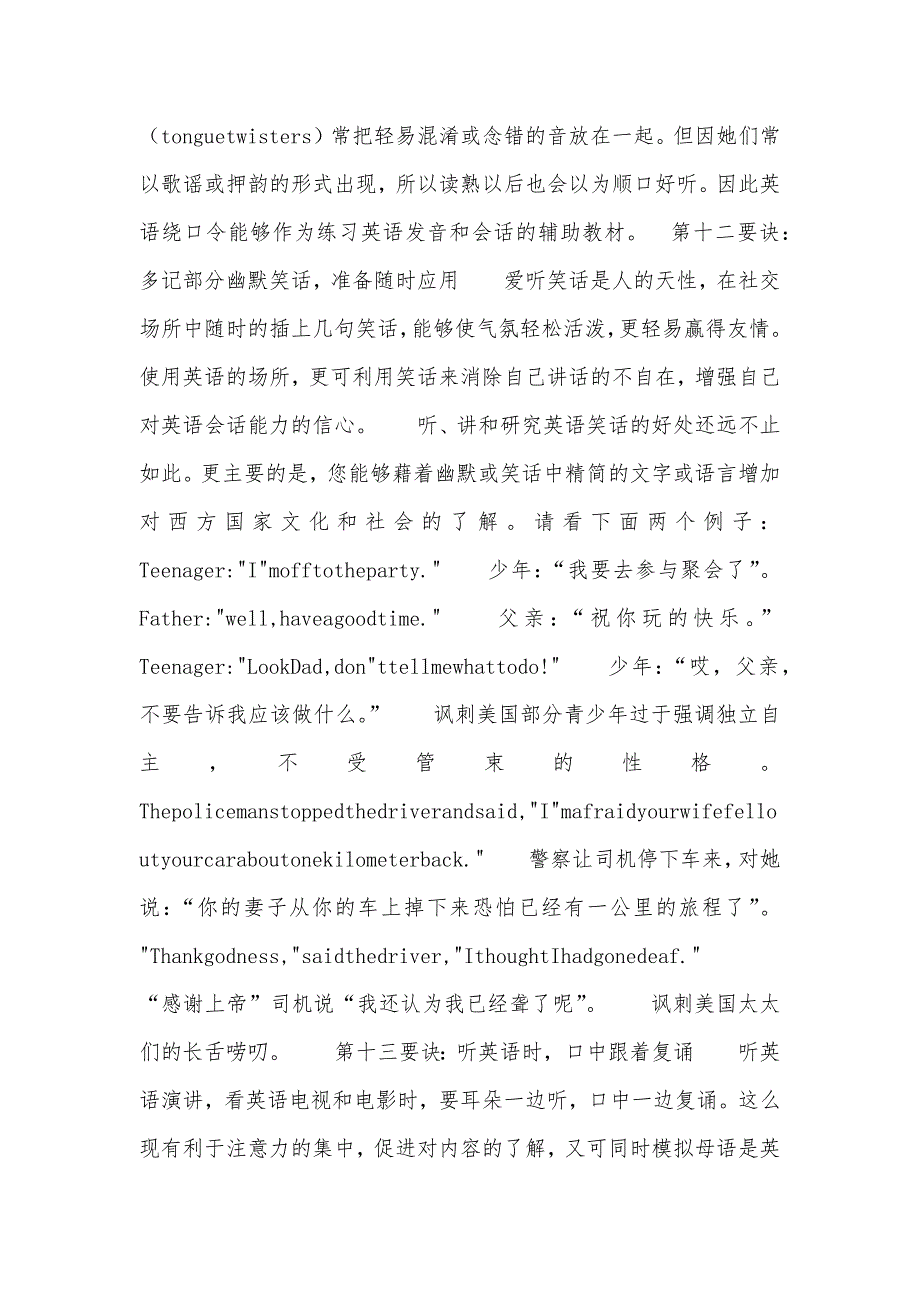 （tonguetwisters）常把轻易混淆或念错的音放在一起。但因她们常
以歌谣或押韵的形式出现，所以读熟以后也会以为顺口好听。因此英
语绕口令能够作为练习英语发音和会话的辅助教材。 第十二要诀：
多记部分幽默笑话，准备随时应用 爱听笑话是人的天性，在社交
场所中随时的插上几句笑话，能够使气氛轻松活泼，更轻易赢得友情。
使用英语的场所，更可利用笑话来消除自己讲话的不自在，增强自己
对英语会话能力的信心。 听、讲和研究英语笑话的好处还远不止
如此。更主要的是，您能够藉着幽默或笑话中精简的文字或语言增加
对西方国家文化和社会的了解。请看下面两个例子：
Teenager:"I"mofftotheparty." 少年：“我要去参与聚会了”。
Father:"well,haveagoodtime." 父亲：“祝你玩的快乐。”
Teenager:"LookDad,don"ttellmewhattodo!" 少年：“哎，父亲，
不要告诉我应该做什么。” 讽刺美国部分青少年过于强调独立自
主，不受管束的性格。
Thepolicemanstoppedthedriverandsaid,"I"mafraidyourwifefello
utyourcaraboutonekilometerback." 警察让司机停下车来，对她
说：“你的妻子从你的车上掉下来恐怕已经有一公里的旅程了”。
"Thankgodness,"saidthedriver,"IthoughtIhadgonedeaf."
“感谢上帝”司机说“我还认为我已经聋了呢”。 讽刺美国太太
们的长舌唠叨。 第十三要诀：听英语时，口中跟着复诵 听英
语演讲，看英语电视和电影时，要耳朵一边听，口中一边复诵。这么
现有利于注意力的集中，促进对内容的了解，又可同时模拟母语是英